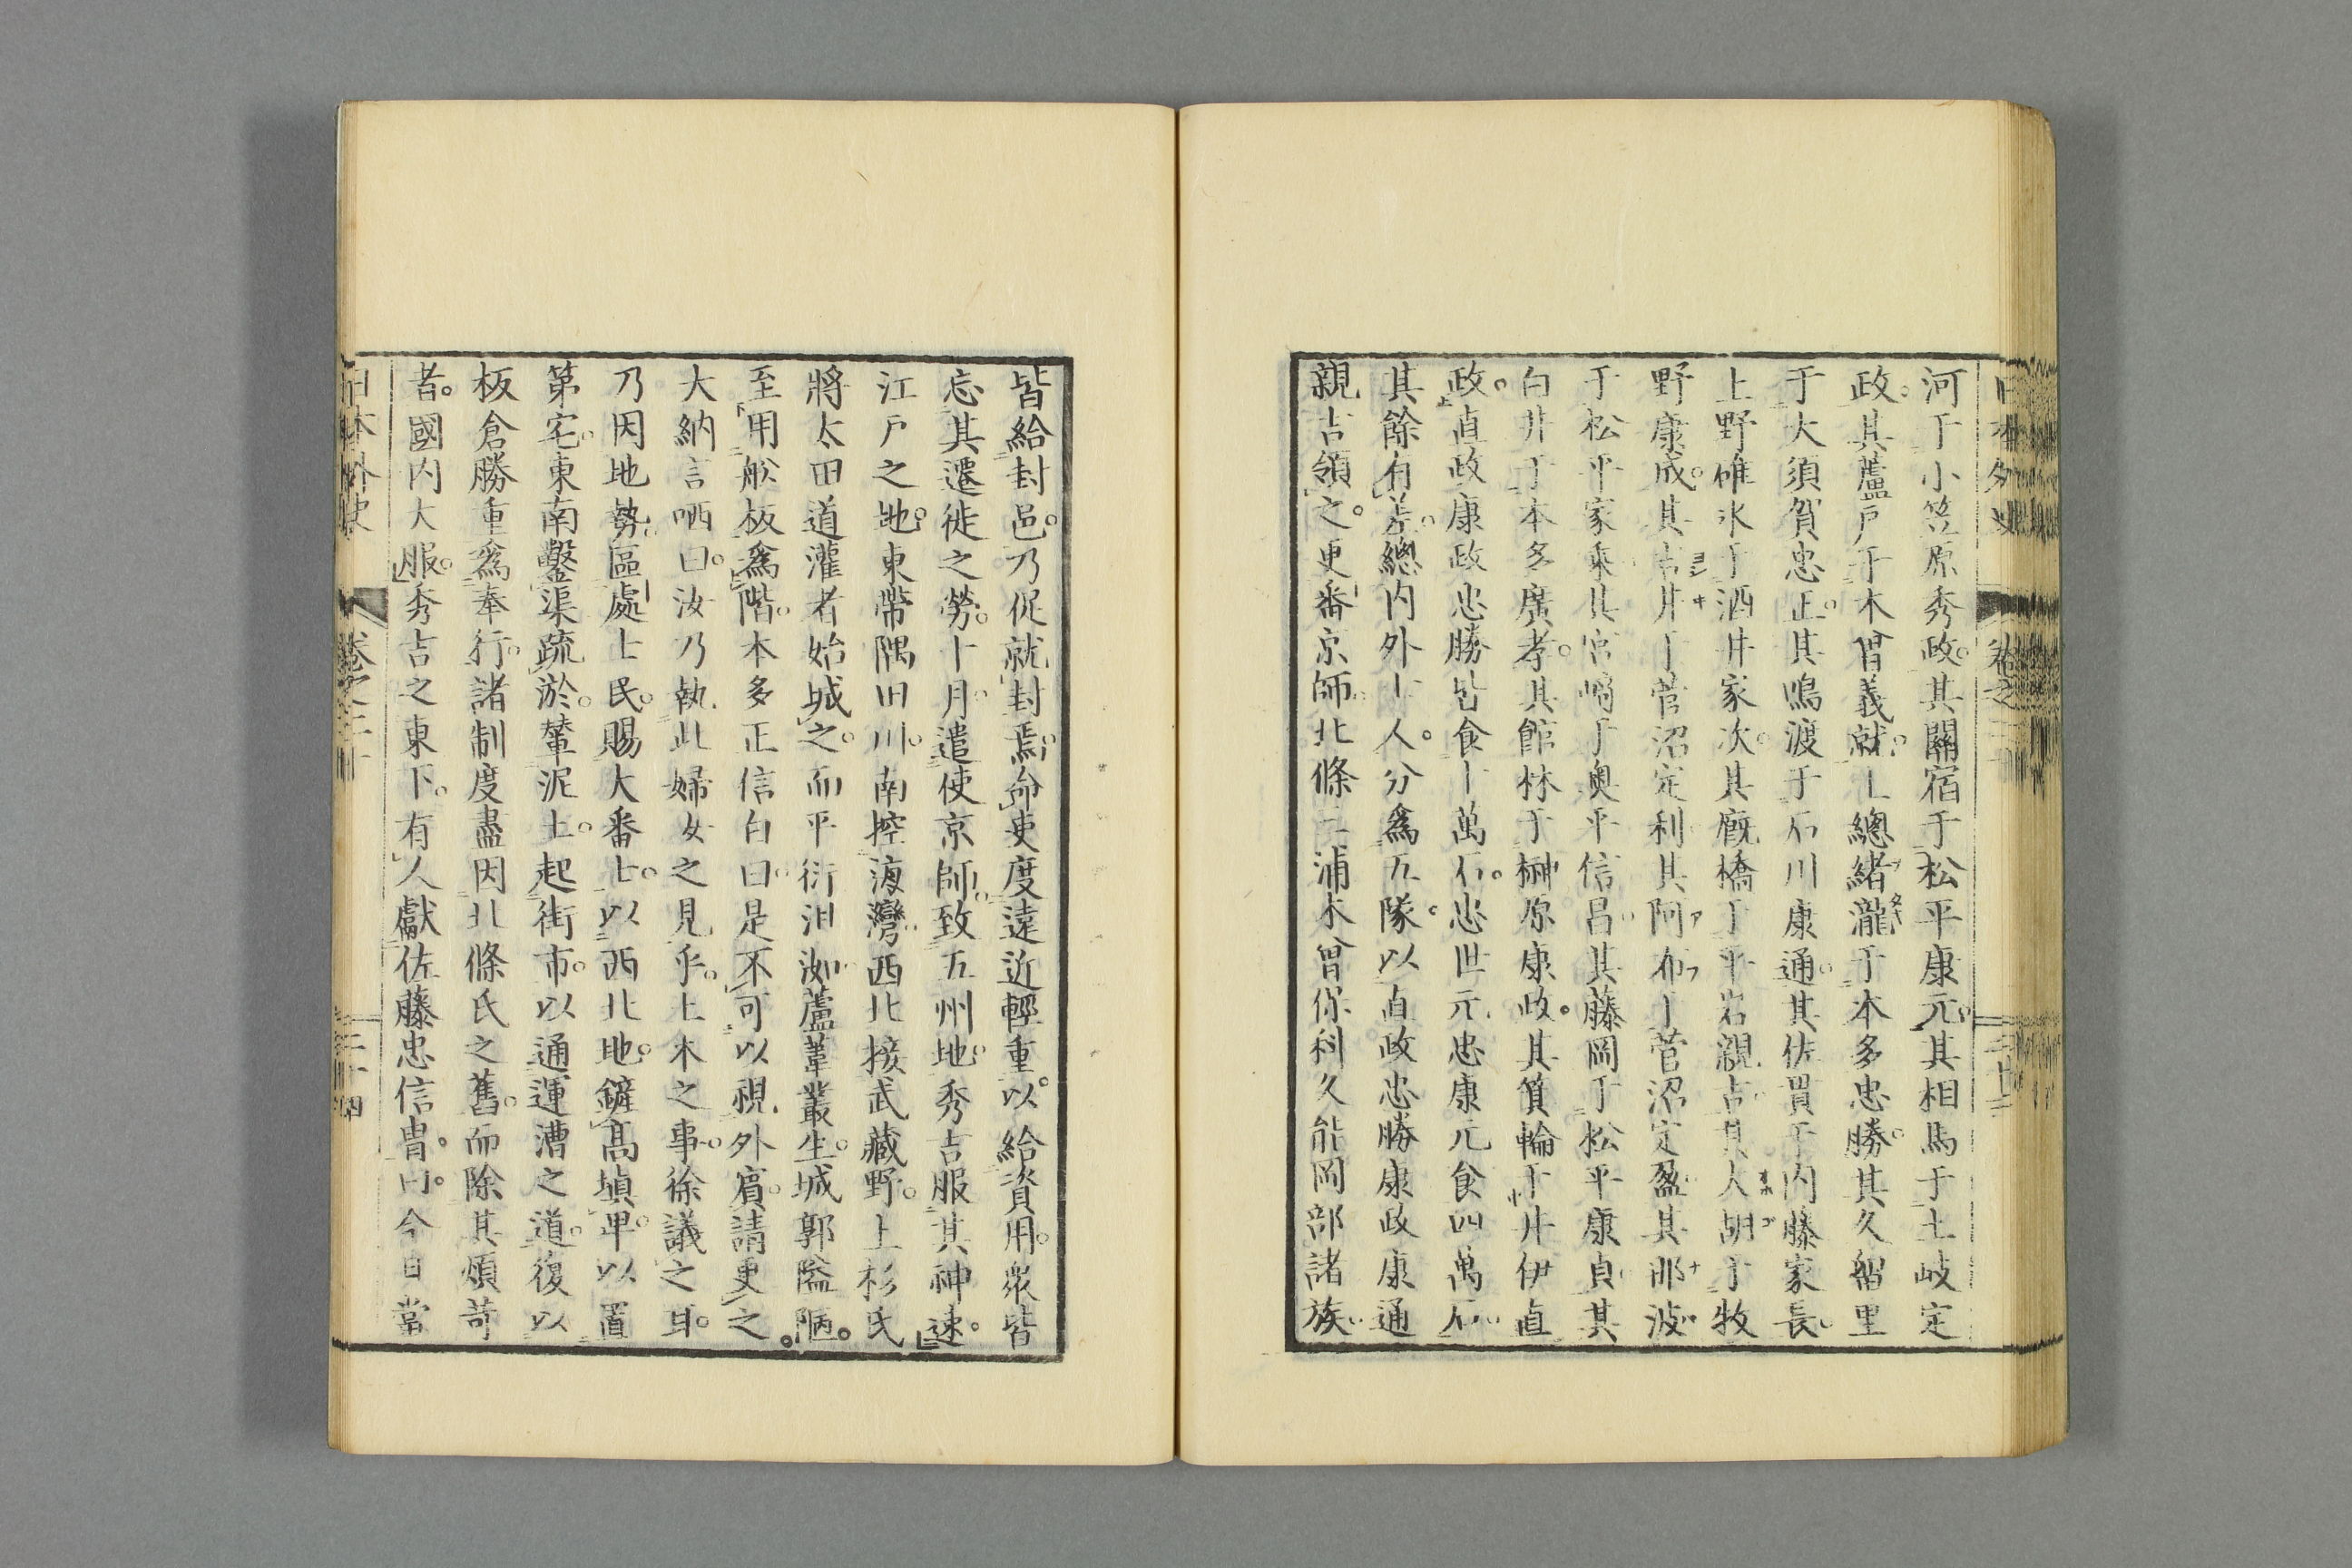 日本外史 卷之二十 二十三
河于小笠原秀政。其關宿于松平康元。其相馬于土岐定
政。其蘆戸于木曾義就。上總緒瀧于本多忠勝。其久留里
于大須賀忠正。其鳴渡于石川康通。其佐貫于內藤家長。
上野碓氷于酒井家次。其廐橋于平岩親吉。其大胡于牧
野康成。其吉井于菅沼定利。其阿布于菅沼定盈。其那波
于松平家乘。其宮崎于奧平信昌。其藤岡于松平康貞。其
白井于本多廣孝。其館林于榊原康政。其箕輪于井伊直
政。直政康政忠勝皆食十萬石。忠世元忠康元食四萬石。
其餘有差。總內外十人。分爲五隊。以直政忠勝康政康通
親吉領之。更番京師。北條三浦木曾保科久能岡部諸族。
皆給封邑。乃促就封焉。命吏度遠近輕重。以給資用。衆皆
忘其遷徙之勞。十月。遣使京師。致五州地。秀吉服其神速。
江戸之地。東帶隅田川。南控海灣。西北接武藏野。上杉氏
將太田道灌者始城之。而平衍沮洳。蘆葦叢生。城郭隘陋。
至用舩板爲階。本多正信白曰。是不可以視外賓。請更之。
大納言哂曰。汝乃執此婦女之見乎。土木之事。徐議之耳。
乃因地勢。區處士民。賜大番士。以西北地。鏟高塡卑。以置
第宅。東南鑿渠疏淤。輦泥土。起街市。以通運漕之道。復以
板倉勝重爲奉行。諸制度盡因北條氏之舊。而除其煩苛
者。國內大服。秀吉之東下。有人獻佐藤忠信冑。曰。今日當
日本外史 卷之二十 二十四